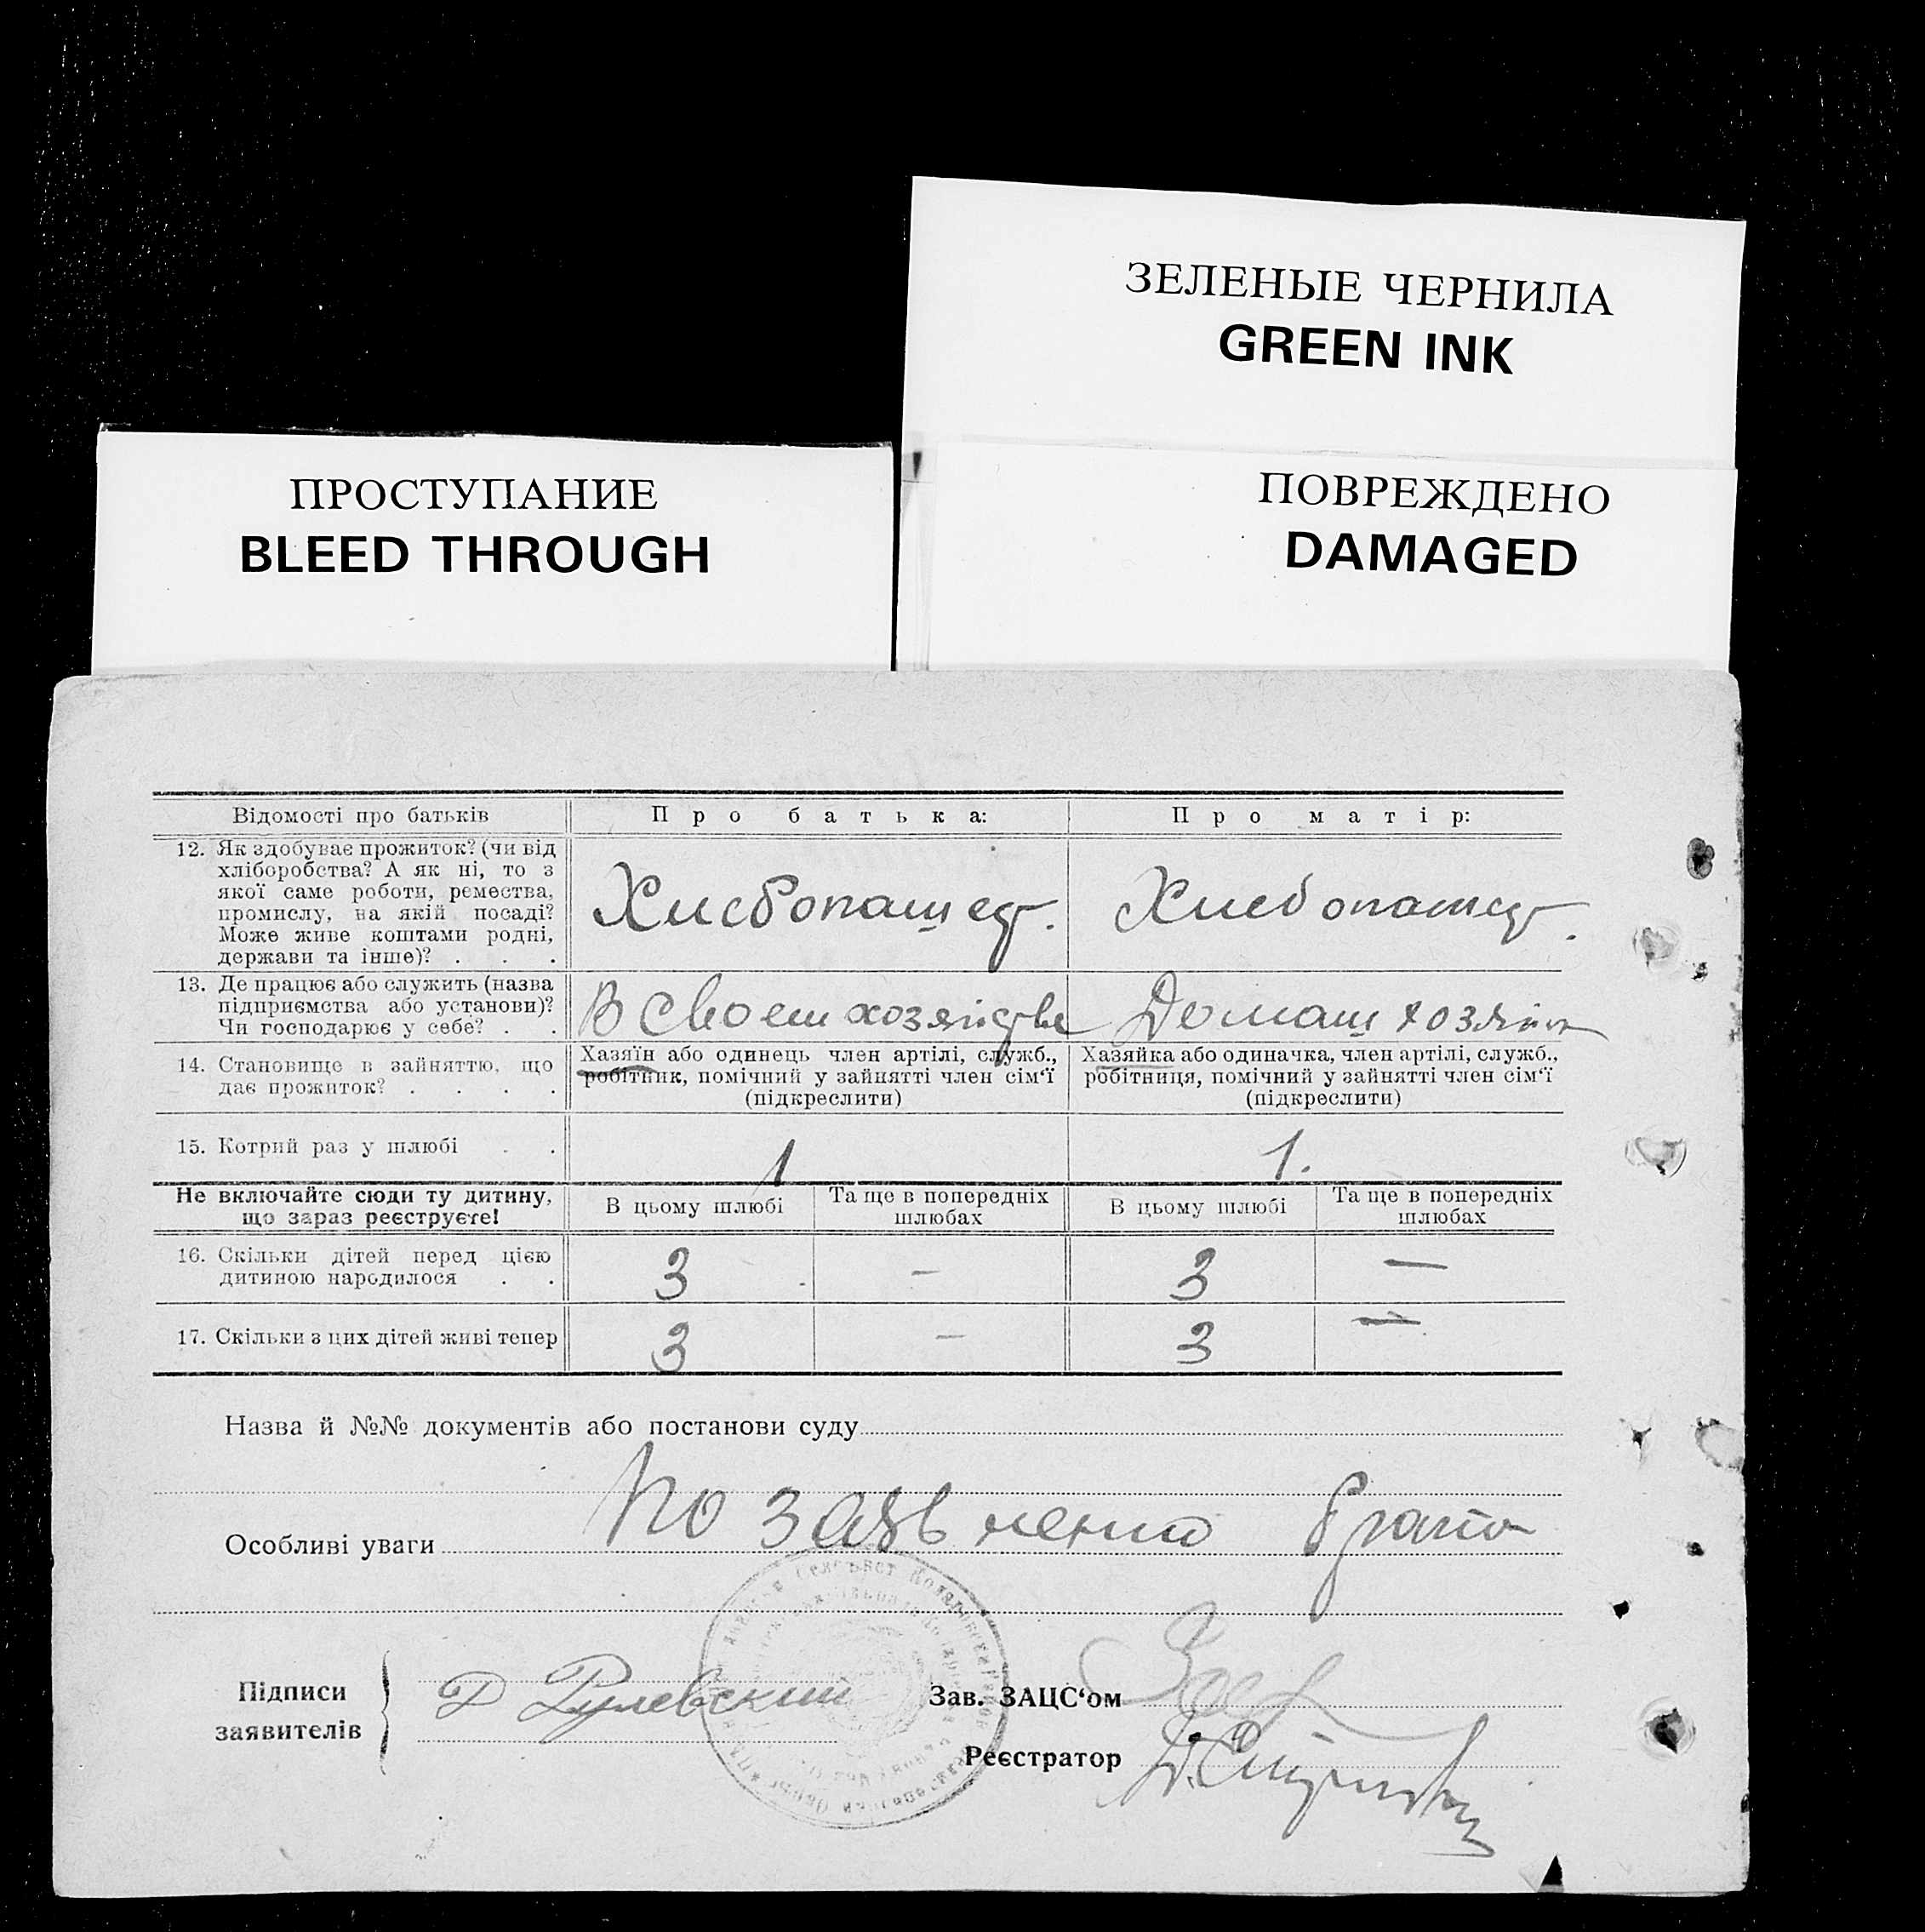 ЗЕЛЕНЫЕ ЧЕРНИЛА
GREEN INK
ПРОСТУПАНИЕ
BLEED THROUGH
ПОВРЕЖДЕНО
DAMAGED
Відомості про батьків
Про батька:
Про матір:
12. Як здобуває прожиток? (чи від
хліборобства? А як ні, то з
якої саме роботи, ремества,
промислу, на якій посаді?
Може живе коштами родні,
держави та інше)? . . .
Хлебопашест.
Хлебопашест.
13. Де працює або служить (назва
підприємства або установи)?
Чи господарює у себе? . .
В своем хозяйстве
Домаш хозяйка
14. Становище в зайняттю, що
дає прожиток? . . . .
Хазяїн або одинець член артілі, служб.,
робітник, помічний у зайнятті член сім'ї
(підкреслити)
Хазяйка або одиначка, член артілі, служб.,
робітниця, помічний у зайнятті член сім'ї
(підкреслити)
15. Котрий раз у шлюбі . .
1
1.
Не включайте сюди ту дитину,
що зараз реєструєте!
В цьому шлюбі
Та ще в попередніх
шлюбах
В цьому шлюбі
Та ще в попередніх
шлюбах
16. Скільки дітей перед цією
дитиною народилося . .
3
—
3
—
17. Скільки з цих дітей живі тепер
3
—
3
—
Назва й №№ документів або постанови суду
Особливі уваги
По заявлению брата
Підписи
заявителів
Д Рулевский
Зав. ЗАЦС'ом
Реєстратор